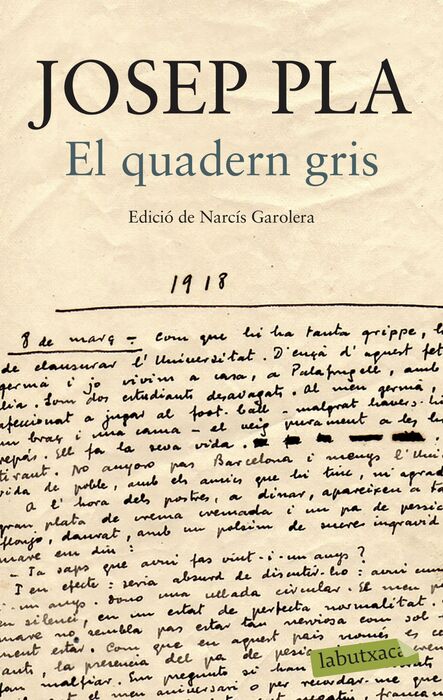 JOSEP PLA
El quadern gris
Edició de Narcís Garolera
1918
8 de març – Com que hi ha tanta grippe, h
de clausurar l'Universitat. D'ençà d'aquest fet
germà i jo vivim a casa, a Palafrugell, amb
lia. Som dos estudiants desvagats. Al meu germà,
afeccionat a jugar al foot-ball – malgrat haver-hi
un braç i una cama – el veig purament a les h
repàs. Ell fa la seva vida.
tirant. No anyoro pas Barcelona i menys l'Uni
vida de poble, amb els amics que hi tinc, m'agrad
A l'hora dels postres, a dinar, apareixen a ta
gran plata de crema cremada i un pa de pessic
flonjo, daurat, amb un polsim de sucre ingravid
mare em diu:
– Ja saps que avui fas vint-i-un anys?
I en efecte: seria absurd de discutir-ho: avui
i-un anys. Dono una ullada circular. El meu p
en silenci, en un estat de perfecta normalitat.
mare no sembla pas estar tan nerviosa com sol
ment estar. Com que en aquest país només es ce
ants, la presència del pa de pessic
fan malfiar. Em pregunto si han
tament o per recordar-me que
labutxaca